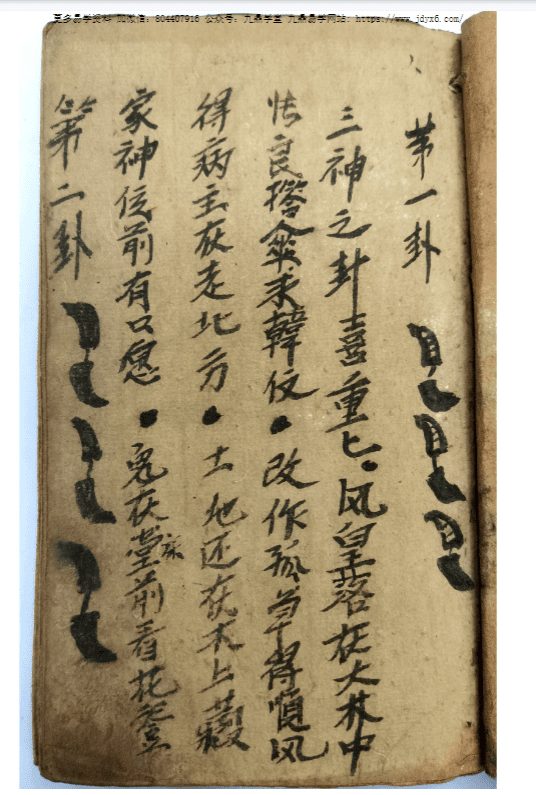 更多易学资料 加微信：804407916 公众号：九鼎学堂 九鼎易学网站：https://www.jdyx6.com/
第一卦
三神之卦喜重匕。凤皇落在大林中
张良搭伞求韓仅●改作孤舟得順风
得病主在走北方●土地还在木上藏
家神位前有口愿●鬼在堂前看花
第二卦